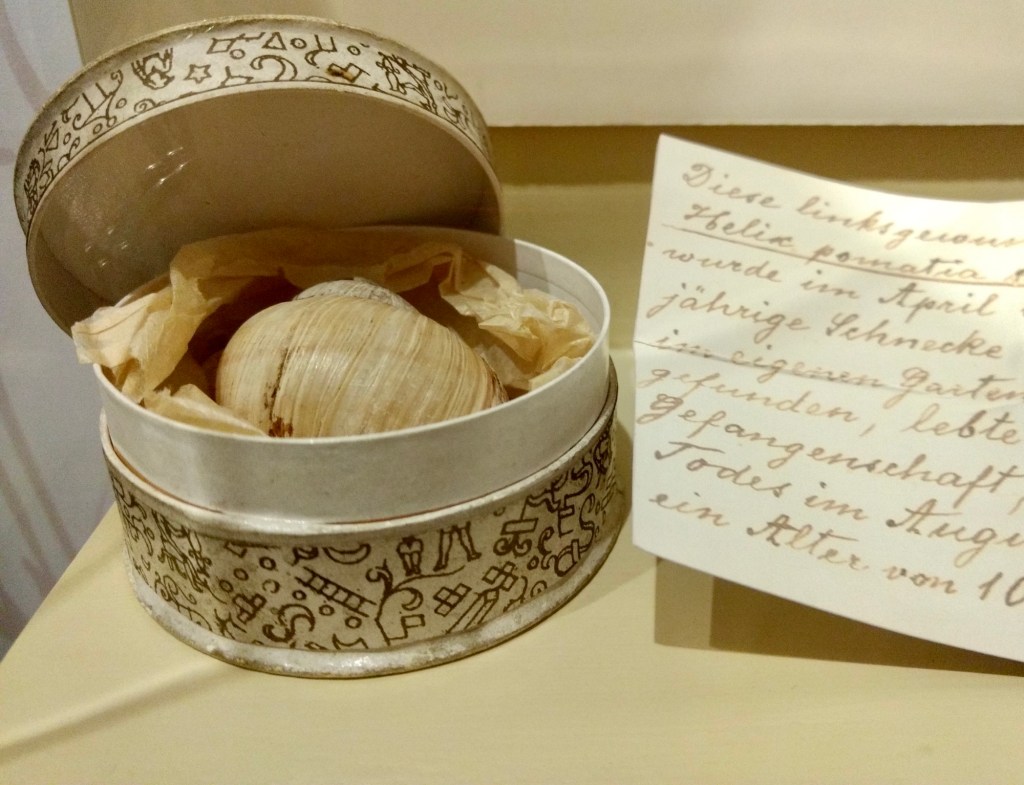 Diese linksgewun
Helix pomatia
wurde im April
jährige Schnecke
im eigenen Garten
gefunden, lebte
Gefangenschaft,
Todes im Augu
ein Alter von 10